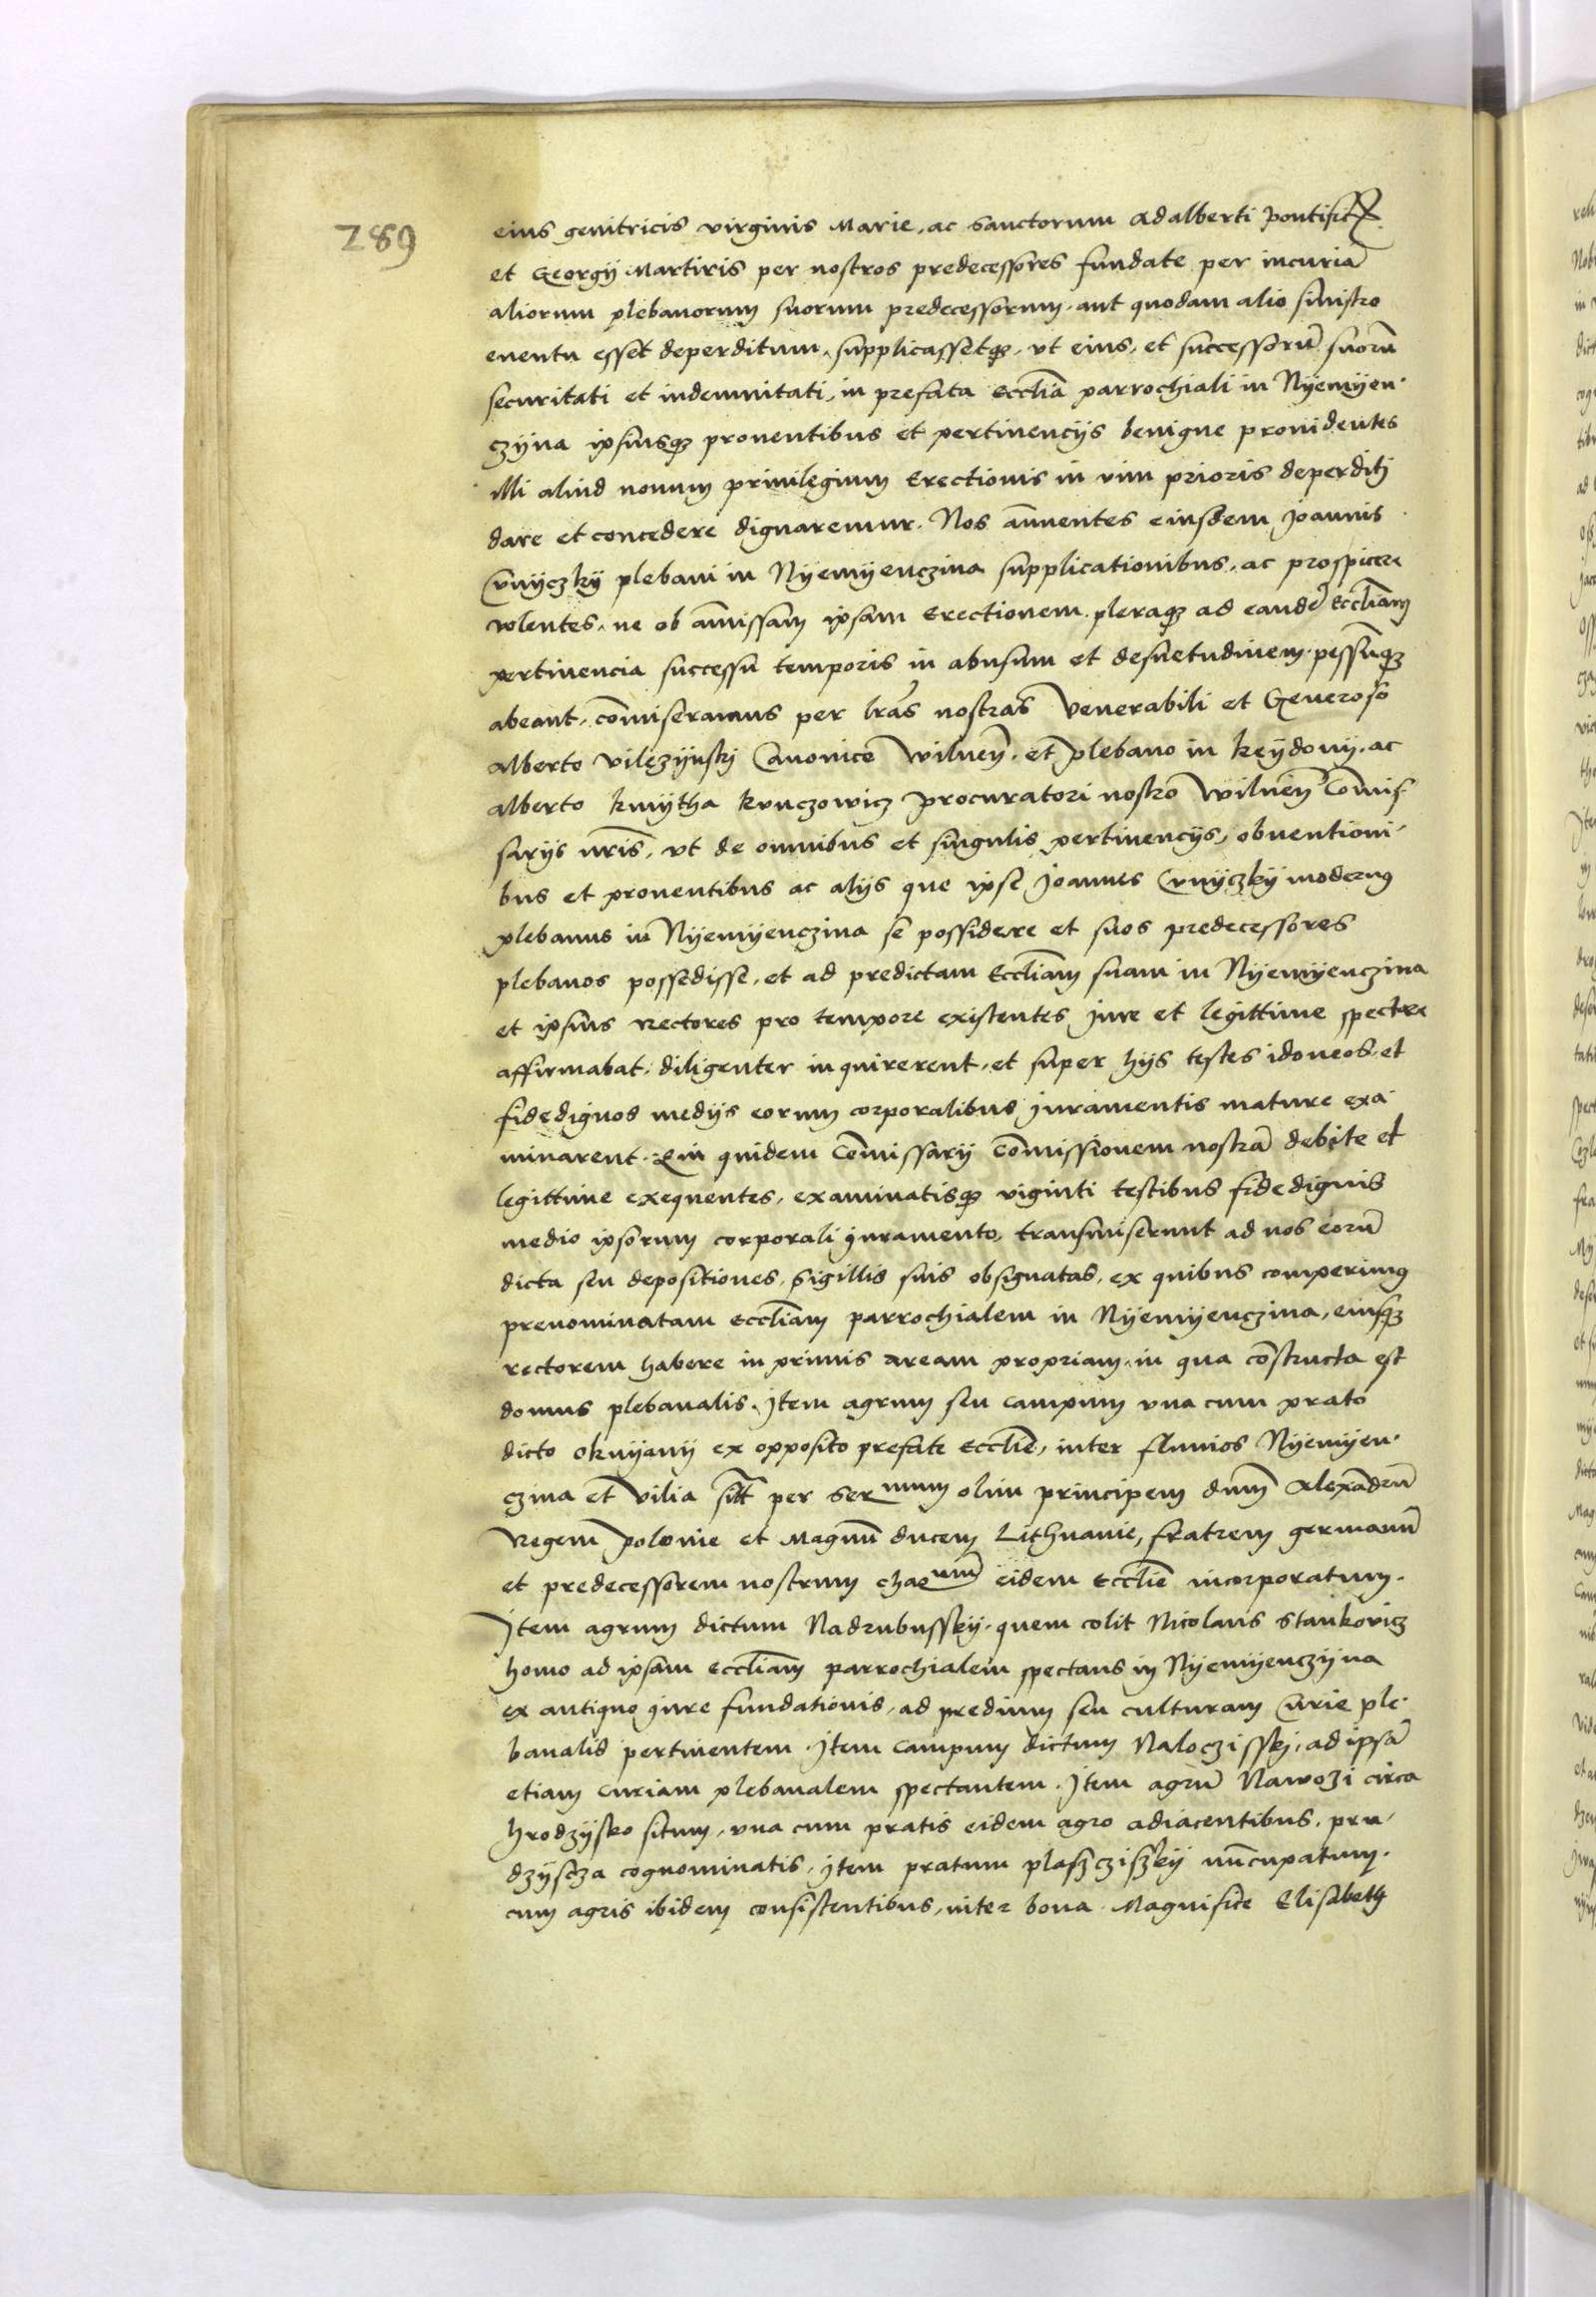 289
eius genitricis virginis Marie, ac Sanctorum Adalberti pontific̄
et Georgij Martiris per nostros predecessores fundate per incuriā
aliorum plebanorum suorum predecessorum, aut quodam alio sinistro
euentu esset deperditum, supplicassetq3, vt eius, et successorū suorū
securitati et indemnitati, in prefata Eccl̄ia parrochiali in Nyemyen·
czyna ipsiusq3 prouentibus et pertinencijs benigne prouidentes
illi aliud nouum priuilegium Erectionis in vim prioris deperditi
dare et concedere dignaremur. Nos an̄uentes eiusdem Joannis
Cunyczky plebani in Nyemyenczina supplicationibus, ac prospicere
volentes, ne ob am̄issam ipsam Erectionem pleraq3 ad eandē Eccl̄iam
pertinencia successu temporis in abusum et desuetudinem pessūq3
abeant, com̄iseramus per l̄ras nostras Venerabili et Generoso
Alberto Vilczynski Canonico Wilnen̄. et plebano in Keydony, ac
Alberto Kmytha Kunczowicz procuratori nostro Wilnen̄ Com̄is-
sarijs nr̄is, vt de omnibus et singulis pertinencijs, obuentioni-
bus et prouentibus ac alijs que ipse Joannes Cunyczky modernus
plebanus in Nyemyenczina se possidere et suos predecessores
plebanos possedisse, et ad predictam Eccl̄iam suam in Nyemyenczina
et ipsius rectores pro tempore existentes Jure et legittime spectare
affirmabat, diligenter inquirerent, et super hijs testes idoneos, et
fidedignos medijs eorum corporalibus juramentis mature exa-
minarent. Qui quidem Com̄issarij Com̄issionem nostrā debite et
legittime exequentes, examinatisq3 viginti testibus fidedignis
medio ipsorum corporali juramento, transmiserunt ad nos eorū
dicta seu depositiones, Sigillis suis obsignatas, ex quibus comperimus
prenominatam Eccl̄iam parrochialem in Nyemyenczina, eiusq3
rectorem habere in primis aream propriam, in qua cōstructa est
domus plebanalis. Item agrum seu campum vna cum prato
dicto Oknyany ex opposito prefate Eccl̄ie, inter fluuios Nyemyen·
czina et Vilia sitt̄ per Sermum olim principem dn̄m Alexādrū
Regem Polonie et Magnū ducem Lithuanie, fratrem germanū
et predecessorem nostrum chaeum eidem Eccl̄ie incorporatum.
Item agrum dictum Nadrubussky, quem colit Nicolaus Stankovicz
homo ad ipsam Eccl̄iam parrochialem spectans in Nyemyenczyna
ex antiquo jure fundationis, ad predium seu culturam Curie ple·
banalis pertinentem. Item campum dictum Naloczisski, ad ipsā
etiam curiam plebanalem spectantem. Item agrū Nawozi circa
Hrodzysko situm, vna cum pratis eidem agro adiacentibus, pru-
dzyscza cognominatis. Item pratum plaszcziszky nūcupatum,
cum agris ibidem consistentibus, inter bona Magnifice Elisabeth